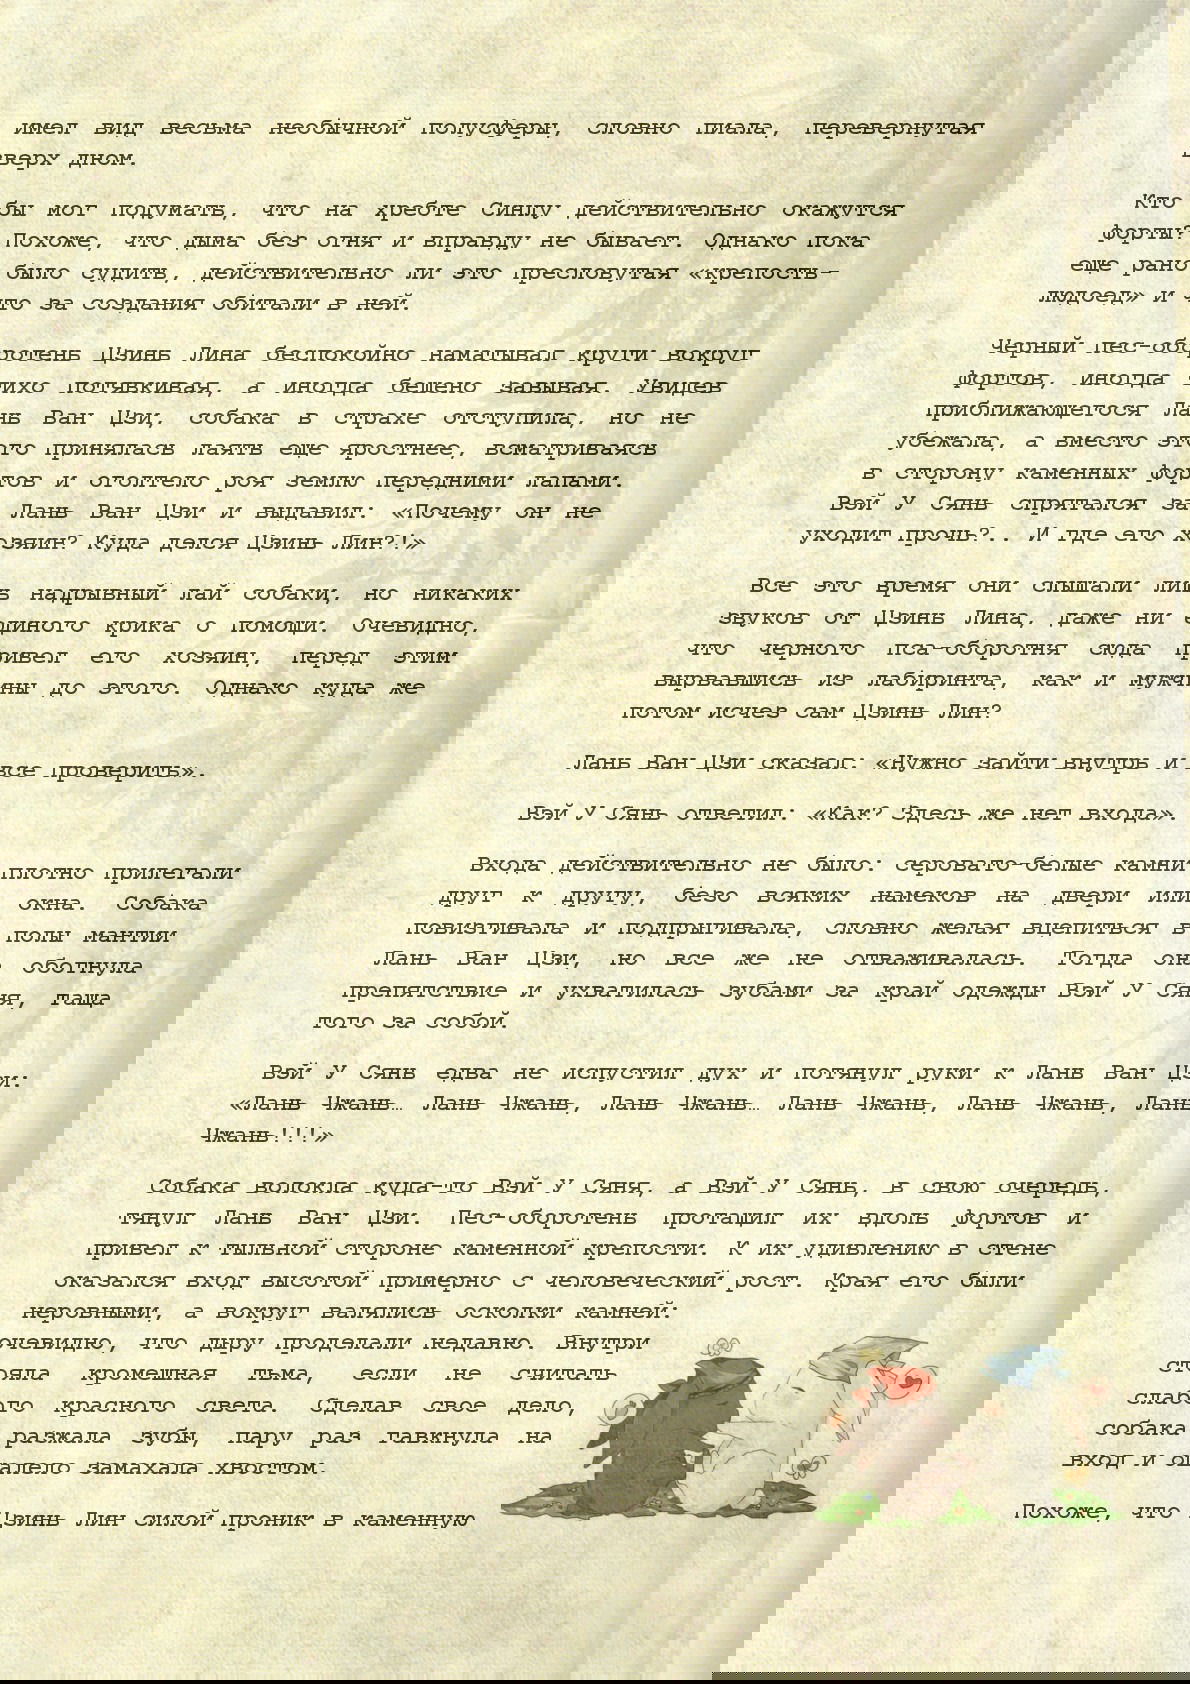 имел вид весьма необычной полусферы, словно пиала, перевернутая
вверх дном.
Кто бы мог подумать, что на хребте Синлу действительно окажутся
форты? Похоже, что дыма без огня и вправду не бывает. Однако пока
еще рано было судить, действительно ли это пресловутая «крепость-
людоед» и что за создания обитали в ней.
Черный пес-оборотень Цзинь Лина беспокойно наматывал круги вокруг
фортов, иногда тихо потявкивая, а иногда бешено завывая. Увидев
приближающегося Лань Ван Цзи, собака в страхе отступила, но не
убежала, а вместо этого принялась лаять еще яростнее, всматриваясь
в сторону каменных фортов и оголтело роя землю передними лапами.
Вэй У Сянь спрятался за Лань Ван Цзи и выдавил: «Почему он не
уходит прочь?.. И где его хозяин? Куда делся Цзинь Лин?!»
Все это время они слышали лишь надрывный лай собаки, но никаких
звуков от Цзинь Лина, даже ни единого крика о помощи. Очевидно,
что черного пса-оборотня сюда привел его хозяин, перед этим
вырвавшись из лабиринта, как и мужчины до этого. Однако куда же
потом исчез сам Цзинь Лин?
Лань Ван Цзи сказал: «Нужно зайти внутрь и все проверить».
Вэй У Сянь ответил: «Как? Здесь же нет входа».
Входа действительно не было: серовато-белые камни плотно прилегали
друг к другу, безо всяких намеков на двери или окна. Собака
повизгивала и подпрыгивала, словно желая вцепиться в полы мантии
Лань Ван Цзи, но все же не отваживалась. Тогда она обогнула
препятствие и ухватилась зубами за край одежды Вэй У Сяня, таща
того за собой.
Вэй У Сянь едва не испустил дух и потянул руки к Лань Ван Цзи:
«Лань Чжань… Лань Чжань, Лань Чжань… Лань Чжань, Лань Чжань, Лань
Чжань!!!»
Собака волокла куда-то Вэй У Сяня, а Вэй У Сянь, в свою очередь,
тянул Лань Ван Цзи. Пес-оборотень протащил их вдоль фортов и
привел к тыльной стороне каменной крепости. К их удивлению в стене
оказался вход высотой примерно с человеческий рост. Края его были
неровными, а вокруг валялись осколки камней:
очевидно, что дыру проделали недавно. Внутри
стояла кромешная тьма, если не считать
слабого красного света. Сделав свое дело,
собака разжала зубы, пару раз гавкнула на
вход и ошалело замахала хвостом.
Похоже, что Цзинь Лин силой проник в каменную